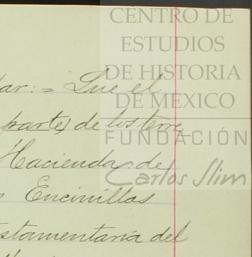 CENTRO DE
ESTUDIOS
DE HISTORIA
DE MÉXICO
FUNDACIÓN
Carlos Slim
dar: = Que el
parte, de los terre_
Hacienda de
Encinillas
stamentaria del